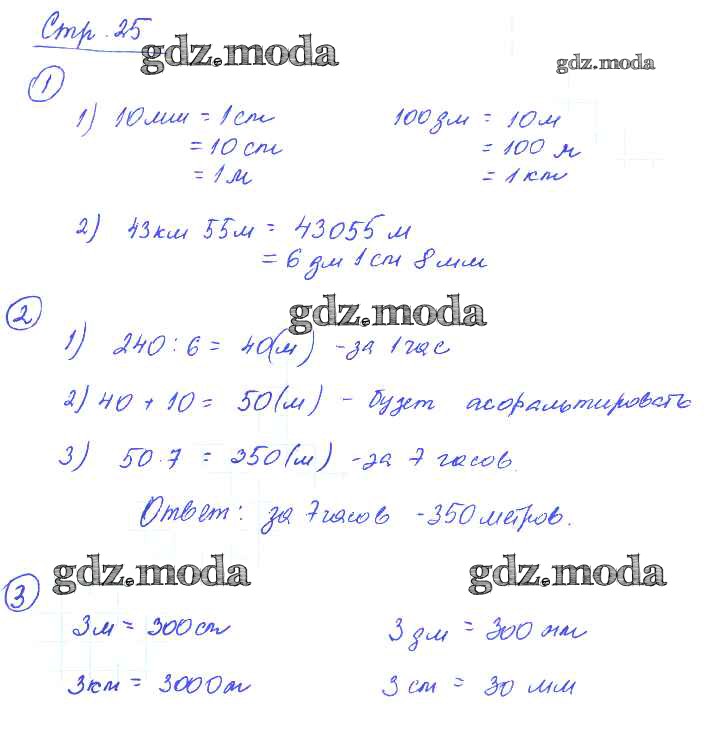 Стр. 25
gdz.moda
gdz.moda
1
1) 10мм = 1см
= 10 см
= 1м
100дм = 10м
= 100 м
= 1км
2) 43км 55м = 43055м
= 6 дм 1см 8мм
gdz.moda
2
1) 240 : 6 = 40(м) - за 1 час
2) 40 + 10 = 50(м) - будет асфальтировать
3) 50 · 7 = 350(м) - за 7 часов.
Ответ: за 7 часов - 350 метров.
gdz.moda
gdz.moda
3
3м = 300см
3дм = 300мм
3км = 3000м
3 см = 30 мм